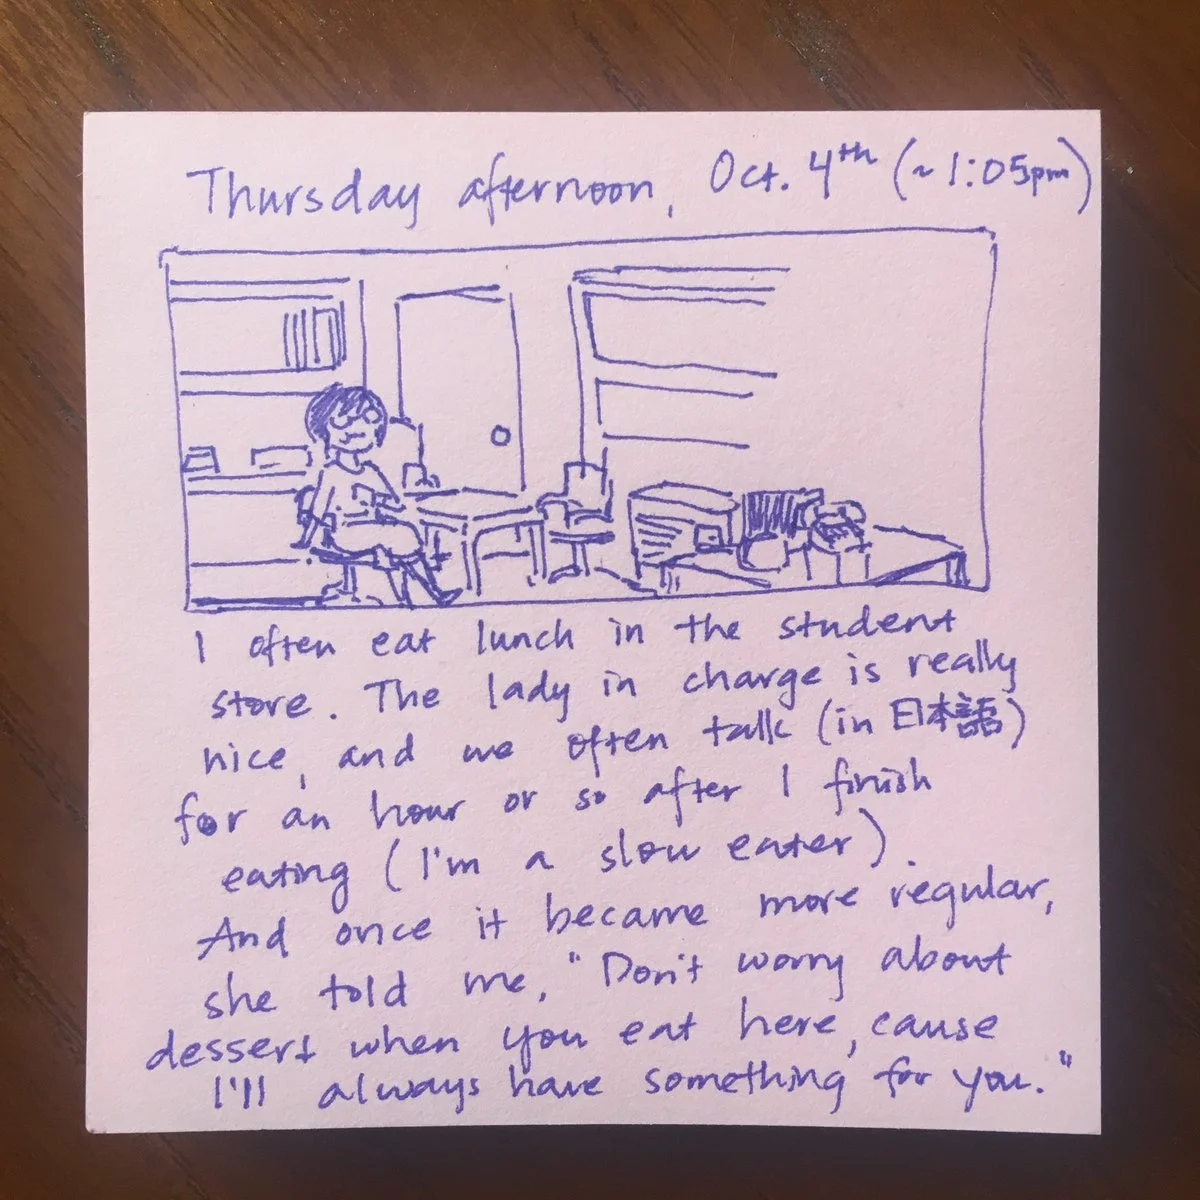 Thursday afternoon, Oct. 4th (~1:05pm)
I often eat lunch in the student
store. The lady in charge is really
nice, and we often talk (in 日本語)
for an hour or so after I finish
eating (I'm a slow eater).
And once it became more regular,
she told me, "Don't worry about
dessert when you eat here, cause
I'll always have something for you."